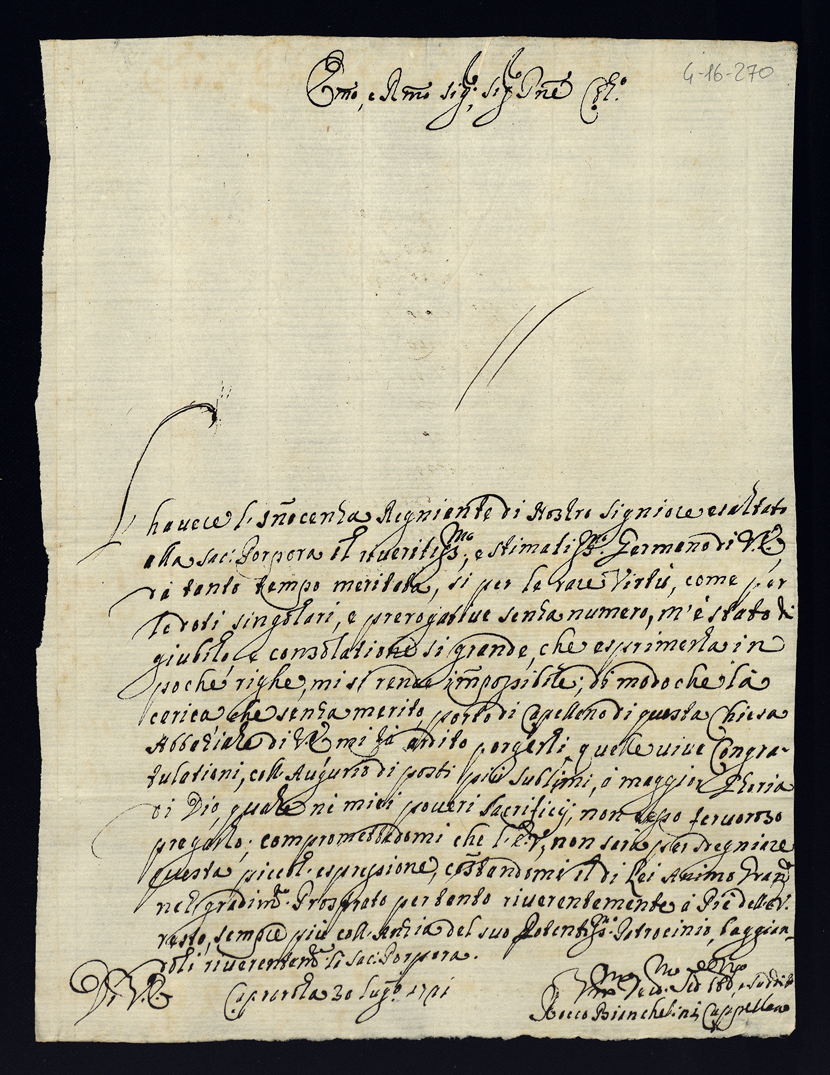 4-16-270
Emo, e Rmo Sig.r, Sig.r Pne Col.o
L'havere l'Innocenza Regniente di Nostro Signiore esaltato
alla Sac: Porpora il riveritiss.mo, e stimatiss.mo Germano di V.E.
da tanto tempo meritata, si per le rare Virtù, come per
le doti singolari, e prerogative senza numero, m'è stato di
giubilo, e consolatione si grande, che esprimerla in
poche righe, mi si rende impossibile; di modo che la
carica che senza merito porto di Capellano di questa Chiesa
Abbaziale di V.E. mi fà ardito porgerli, quelle vive Congra-
tulationi, coll'Augurio di posti più sublimi, à maggior Gloria
di Dio, quale ne miei poveri Sacrificij, non cesso fervoroso
pregarlo; compromettendomi che l'E.V., non sarà per sdegniare
questa piccol' espressione, costandomi il di Lei Animo Grand.e
nel gradim.to. Prostrato pertanto riverentemente à Piè della V.
Vasto, sempre più coll' del suo Potentiss.mo Patrocinio, baggian-
doli riverentem.te la Sac: Porpora.
Di V.E.
Caprarola 20 lug.o 1721
Vmo Devo.
Rocco Bianchelini Cappellano